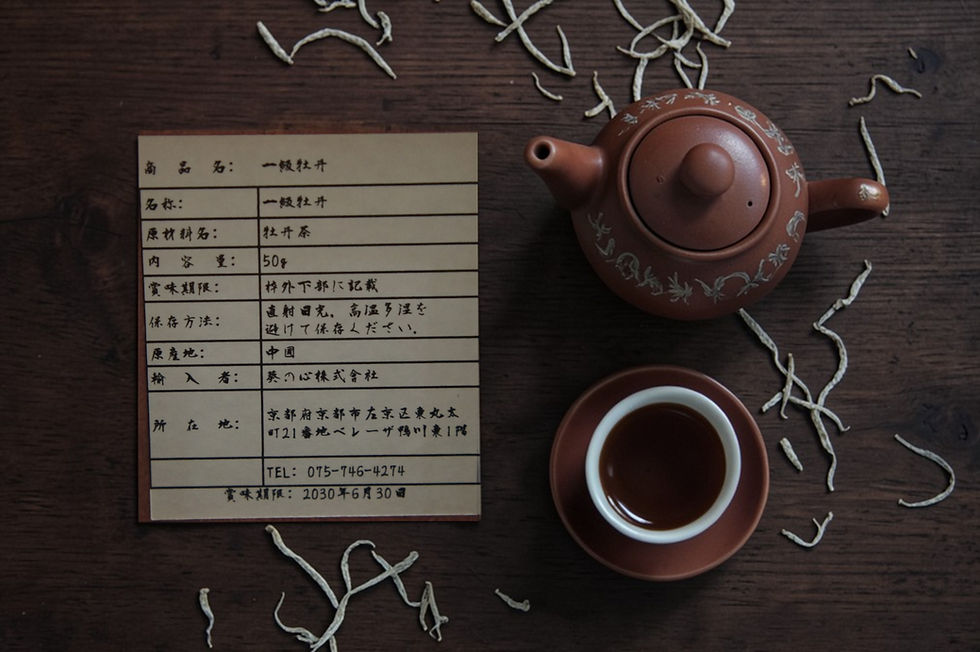 商品名: 一級牡丹
名称: 一級牡丹
原材料名: 牡丹茶
内容量: 50g
賞味期限: 枠外下部に記載
保存方法: 直射日光、高温多湿を
避けて保存ください。
原産地: 中国
輸入者: 葵の心株式會社
所在地: 京都府京都市左京区東丸太
町21番地ベレーザ鴨川東1階
TEL: 075-746-4274
賞味期限: 2030年6月30日